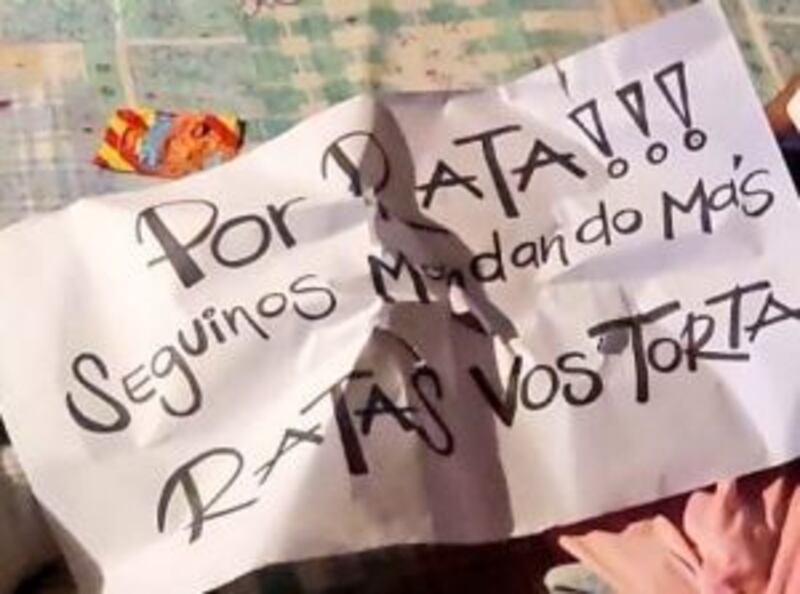 Por RATA!!!
Seguinos Mandando Más
RATAS VOS TORTA